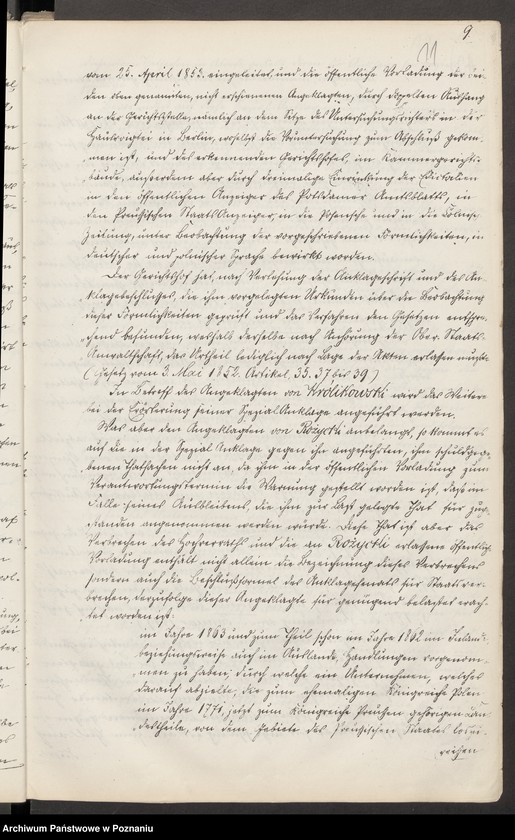 9
11
vom 25. April 1853. eingeleitet, und die öffentliche Vorladung der bei-
den oben genannten, nicht erschienenen Angeklagten, durch doppelten Aushang
an der Gerichtsstelle, nämlich an dem Sitze des Untersuchungsrichters in der
Hausvoigtei in Berlin, woselbst die Voruntersuchung zum Abschluß gekom-
men ist, und des erkennenden Gerichtshofes, im Kammergerichts-
bäude, außerdem aber durch dreimalige Einrückung der Ediktalien
in den öffentlichen Anzeiger des Potsdamer Amtsblatts, in
den Preußischen Staats Anzeiger, in die Posensche und in die
Zeitung, unter Beobachtung der vorgeschriebenen Förmlichkeiten, in
deutscher und polnischer Sprache bewirkt worden.
Der Gerichtshof hat, nach Verlesung der Anklageschrift und des An-
klagebeschlusses, die ihm vorgelegten Urkunden über die Beobachtung
dieser Förmlichkeiten geprüft und das Verfahren den Gesetzen entspre-
chend befunden, weshalb derselbe nach Anhörung der Ober Staats-
Anwaltschaft, das Urtheil lediglich nach Lage der Akten erlassen mußte
(Gesetz vom 3. Mai 1852. Artikel 35. 37 bis 39.)
In Betreff des Angeklagten von Królikowski wird das Weitere
bei der Erörterung seiner Spezial Anklage angeführt werden.
Was aber den Angeklagten von Rożycki anbelangt, so kommt es
auf die in der Spezial Anklage gegen ihn angeführten, ihm schuldgege-
benen Thatsachen nicht an, da ihm in der öffentlichen Vorladung zum
Verantwortungstermin die Warnung gestellt worden ist, daß im
Falle seines Ausbleibens, die ihm zur Last gelegte That für zuge-
standen angenommen werden würde. Diese That ist aber das
Verbrechen des Hochverraths und die an Rożycki erlassene öffentliche
Vorladung enthält nicht allein die Bezeichnung dieses Verbrechens
sondern auch die Beschlußformel des Anklagesenats für Staatsver-
brechen, derzufolge dieser Angeklagte für genügend belastet erach-
tet worden ist:
im Jahre 1863 und zum Theil schon im Jahre 1862 im Inlande
beziehungsweise auch im Auslande, Handlungen vorgenom-
men zu haben, durch welche ein Unternehmen, welches
darauf abzielte, die zum ehemaligen Königreiche Polen
im Jahre 1771, jetzt zum Königreiche Preußen gehörigen Lan-
destheile, von dem Gebiete des Preußischen Staates loszu-
reißen
Archiwum Państwowe w Poznaniu